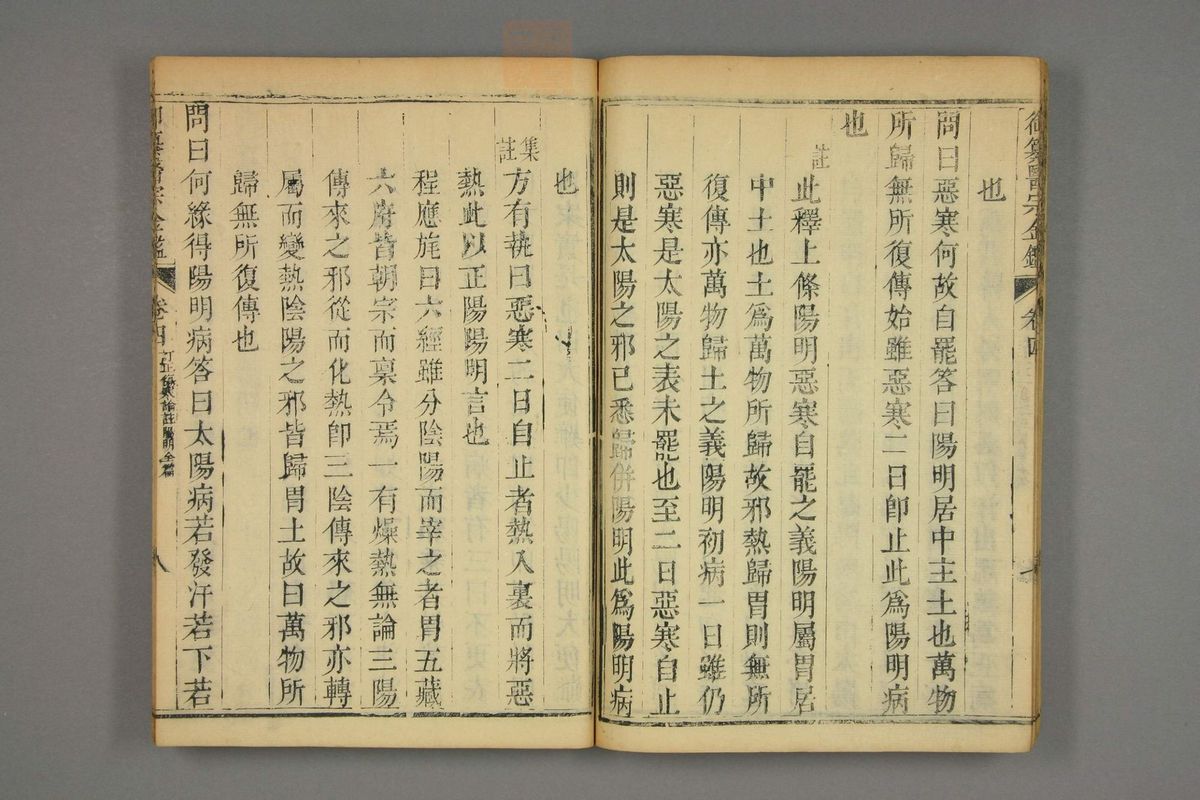 御纂醫宗金鑑 卷四
也
問曰惡寒何故自罷答曰陽明居中主土也萬物
所歸無所復傳始雖惡寒二日卽止此爲陽明病
也
註
此釋上條陽明惡寒自罷之義陽明屬胃居
中土也土爲萬物所歸故邪熱歸胃則無所
復傳亦萬物歸土之義陽明初病一日雖仍
惡寒是太陽之表未罷也至二日惡寒自止
則是太陽之邪已悉歸併陽明此爲陽明病
也
集註
方有執曰惡寒二日自止者熱入裏而將惡
熱此以正陽陽明言也
程應旄曰六經雖分陰陽而宰之者胃五藏
六府皆朝宗而稟令焉一有燥熱無論三陽
傳來之邪從而化熱卽三陰傳來之邪亦轉
屬而變熱陰陽之邪皆歸胃土故曰萬物所
歸無所復傳也
問曰何緣得陽明病答曰太陽病若發汗若下若
御纂醫宗金鑑 卷四 訂正傷寒論註陽明全篇 八